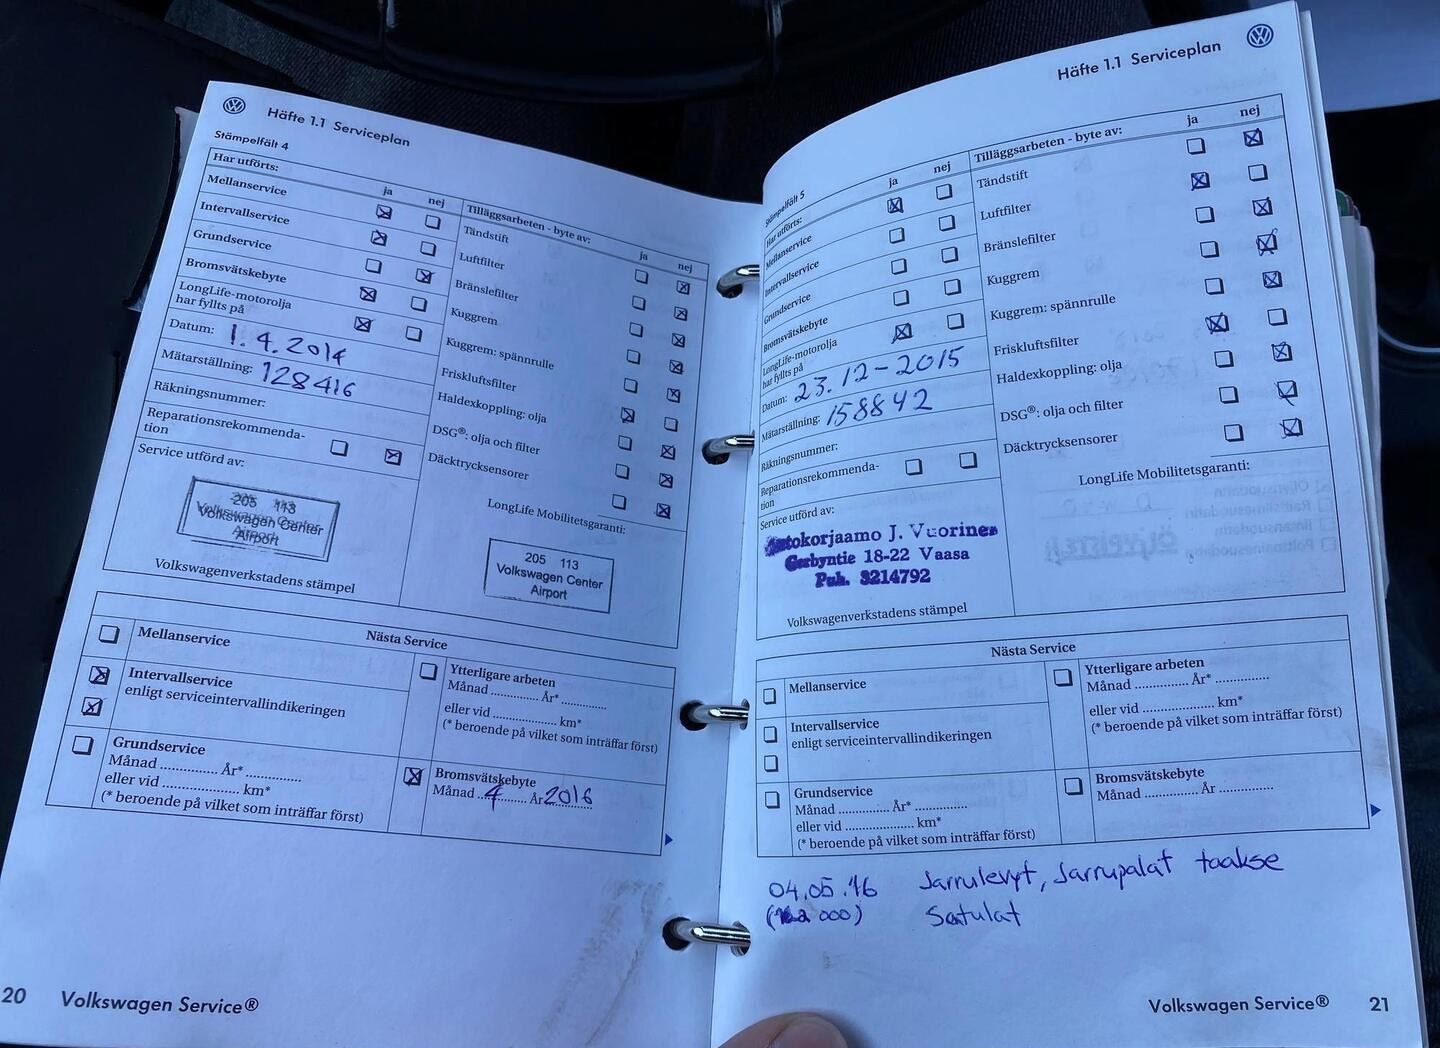 Häfte 1.1 Serviceplan
Stämpelfält 4
Har utförts:
ja nej
Mellanservice
Intervallservice
Grundservice
Bromsvätskebyte
LongLife-motorolja
har fyllts på
Datum: 1.4.2014
Mätarställning: 128416
Räkningsnummer:
Reparationsrekommenda-
tion
Service utförd av:
205 113
Volkswagen Center
Airport
Volkswagenverkstadens stämpel
Tilläggsarbeten - byte av:
ja nej
Tändstift
Luftfilter
Bränslefilter
Kuggrem
Kuggrem: spännrulle
Friskluftsfilter
Haldexkoppling: olja
DSG®: olja och filter
Däcktrycksensorer
LongLife Mobilitetsgaranti:
205 113
Volkswagen Center
Airport
Nästa Service
Mellanservice
Intervallservice
enligt serviceintervallindikeringen
Grundservice
Månad .............. År* .............
eller vid .................... km*
(* beroende på vilket som inträffar först)
Ytterligare arbeten
Månad ............. År* ............
eller vid ................. km*
(* beroende på vilket som inträffar först)
Bromsvätskebyte
Månad 4 År 2016
20 Volkswagen Service®
Häfte 1.1 Serviceplan
Stämpelfält 5
Har utförts:
ja nej
Mellanservice
Intervallservice
Grundservice
Bromsvätskebyte
LongLife-motorolja
har fyllts på
Datum: 23.12-2015
Mätarställning: 158842
Räkningsnummer:
Reparationsrekommenda-
tion
Service utförd av:
Autokorjaamo J. Vuorinen
Gerbyntie 18-22 Vaasa
Puh. 3214792
Volkswagenverkstadens stämpel
Tilläggsarbeten - byte av:
ja nej
Tändstift
Luftfilter
Bränslefilter
Kuggrem
Kuggrem: spännrulle
Friskluftsfilter
Haldexkoppling: olja
DSG®: olja och filter
Däcktrycksensorer
LongLife Mobilitetsgaranti:
Nästa Service
Mellanservice
Intervallservice
enligt serviceintervallindikeringen
Grundservice
Månad ............ År* .............
eller vid ................. km*
(* beroende på vilket som inträffar först)
Ytterligare arbeten
Månad ............. År* .............
eller vid ................. km*
(* beroende på vilket som inträffar först)
Bromsvätskebyte
Månad ............. År .............
04.05.16 Jarrulevyt, Jarrupalat taakse
Satulat
Volkswagen Service® 21